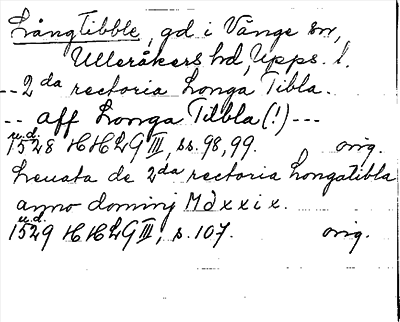 LångTibble, gd i Vänge sn,
Ulleråkers hd, Upps. l.
-- 2da rectoria Longa Tibla.
-- aff Longa Tibla (!) ---
u.d.
1528 HHLG III, ss. 98, 99. orig.
Leuata de 2da rectoria Longatibla
anno dominj Mdxxix.
u.d.
1529 HHLG III, s. 107. orig.